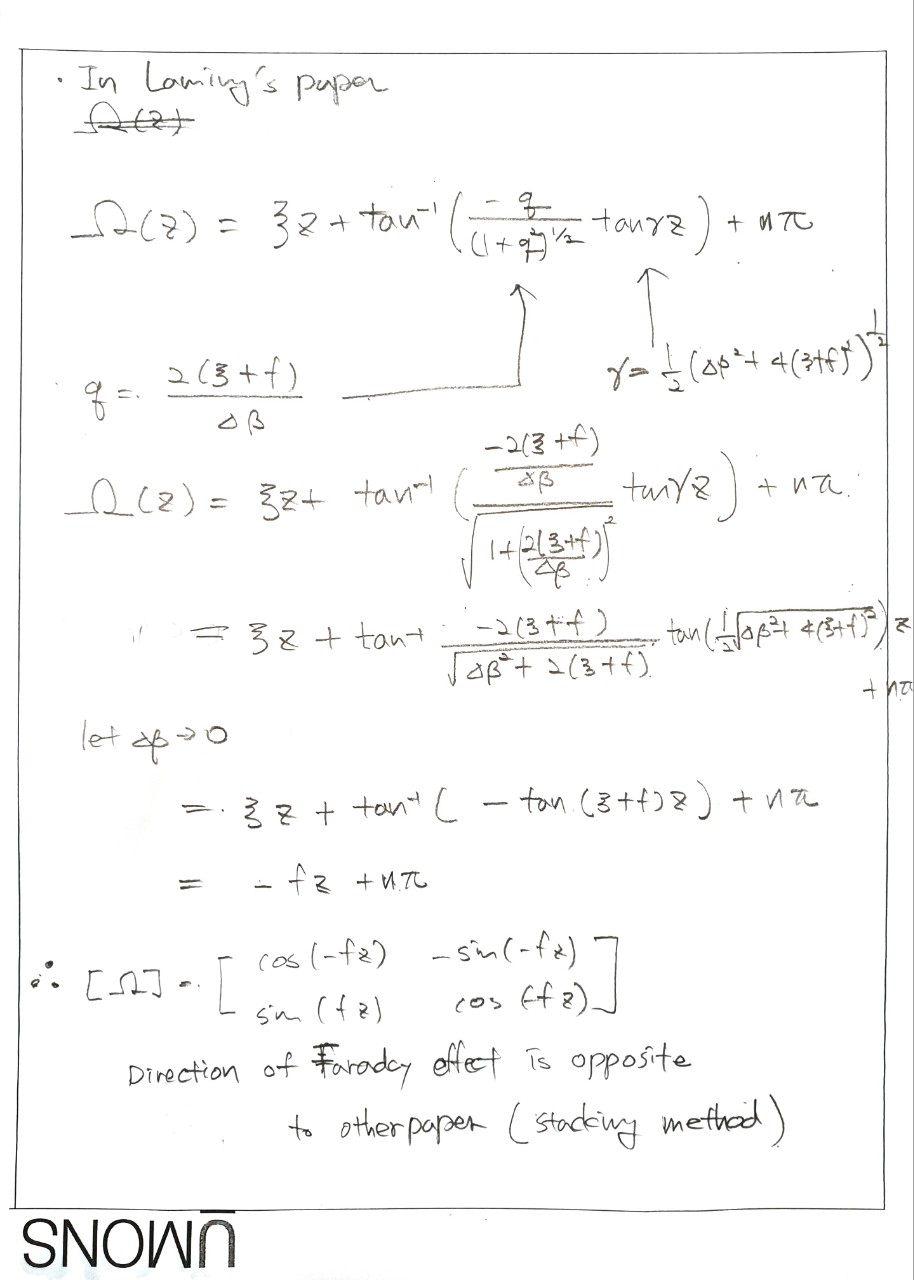 · In Laming's paper
Ω(z)
Ω(z) = ξz + tan⁻¹ ( -q / (1+q²)^½ tanγz ) + nπ
q = 2(ξ+f) / Δβ
γ = ½ (Δβ² + 4(ξ+f)²)^½
Ω(z) = ξz + tan⁻¹ ( (-2(ξ+f)/Δβ) / √(1+(2(ξ+f)/Δβ)²) tanγz ) + nπ.
= ξz + tan⁻¹ -2(ξ+f) / √(Δβ² + 2(ξ+f)) · tan(½√(Δβ² + 4(ξ+f)²)) z
+ nπ
let Δβ → 0
= ξz + tan⁻¹ ( - tan (ξ+f)z ) + nπ
= - fz + nπ
∴ [Ω] = [ cos(-fz) -sin(-fz)
sin(fz) cos(-fz) ]
Direction of Faraday effect is opposite
to other paper (stacking method)
UMONS